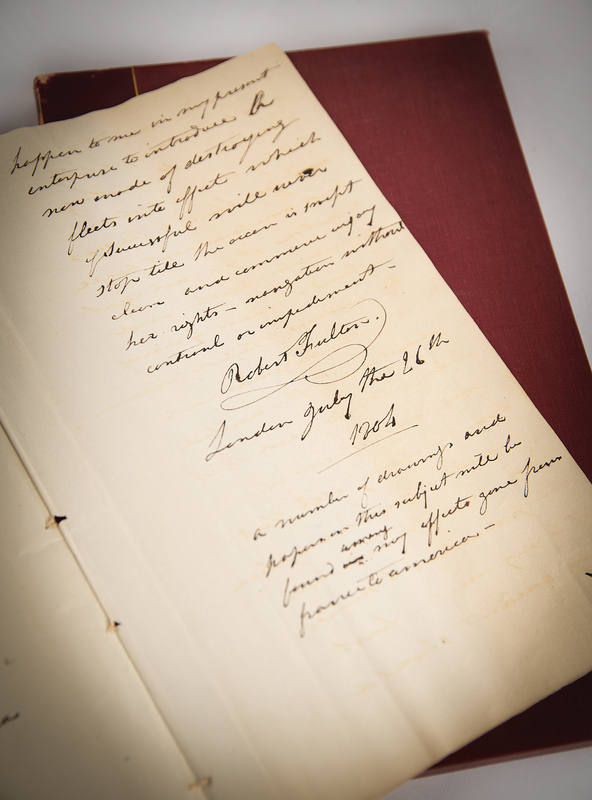 happen to me in my present
enterprise to introduce A
new mode of destroying
fleets into effect which
if Successful will never
stop till the ocean is swept
clean and commerce enjoy
her rights – navigation without
controul or impediment –
Robert Fulton.
London July the 26th
1804
a number of drawings and
papers on this subject will be
found among my effects gone from
france to america –